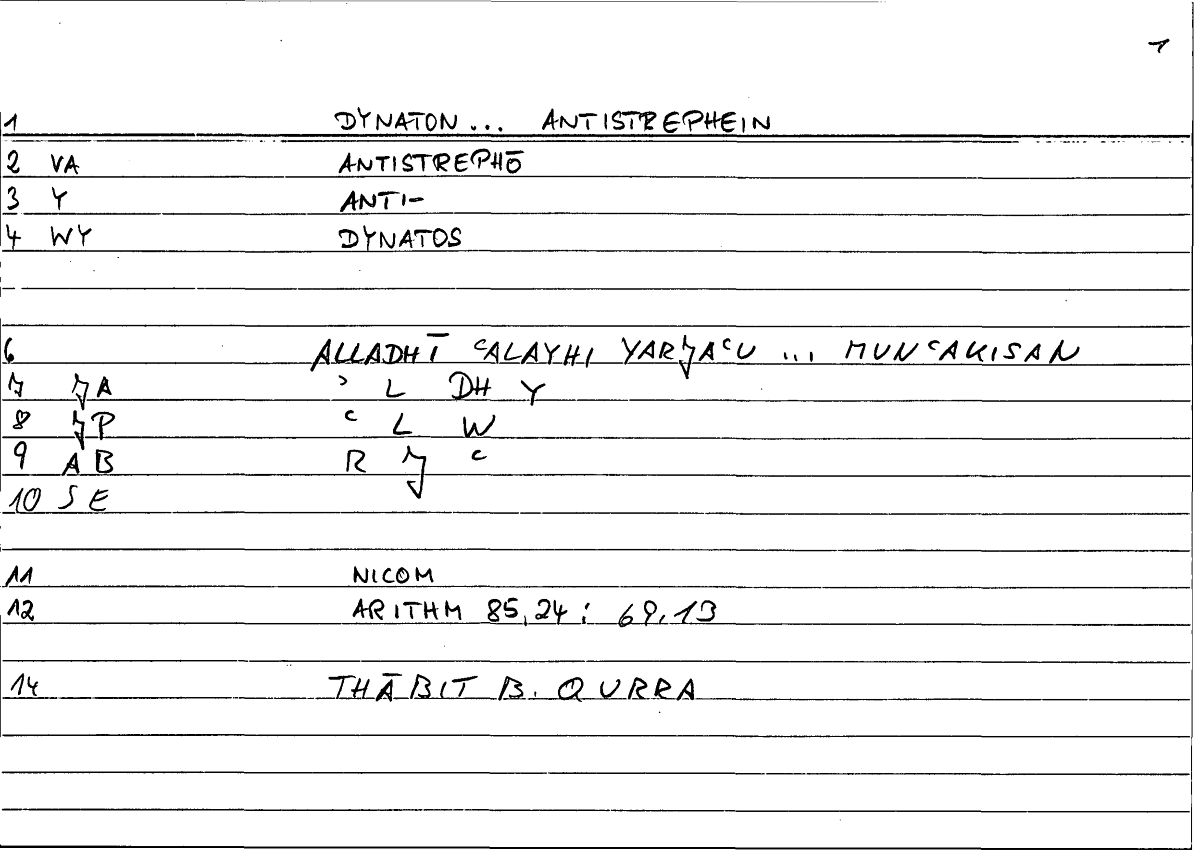 1
1 DYNATON ... ANTISTREPHEIN
2 VA ANTISTREPHŌ
3 Y ANTI-
4 WY DYNATOS
6 ALLADHĪ ʿALAYHI YARJAʿU ... MUNʿAKISAN
7 JA ʾ L DH Y
8 JP ʿ L W
9 AB R J ʿ
10 SE
11 NICOM
12 ARITHM 85,24 ; 69,13
14 THĀBIT B. QURRA